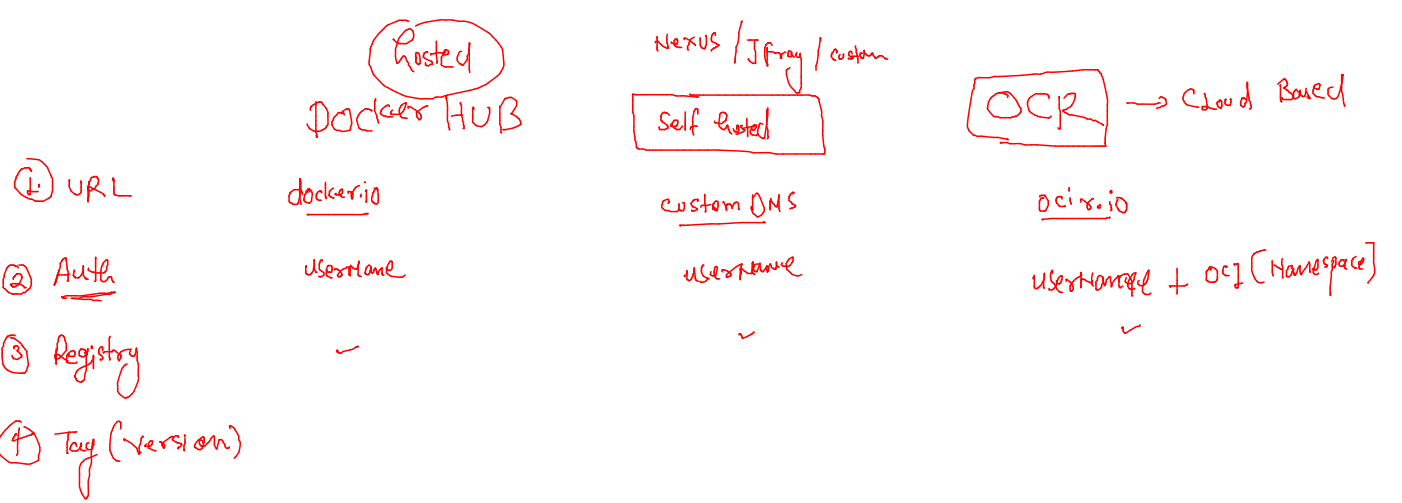 hosted
Docker HUB
Nexus / Jfrog / custom
Self hosted
OCR → Cloud Based
1. URL docker.io custom DNS ocir.io
2 Auth userName userName userName + OCI [Namespace]
3 Registry ✓ ✓ ✓
4 Tag (version)